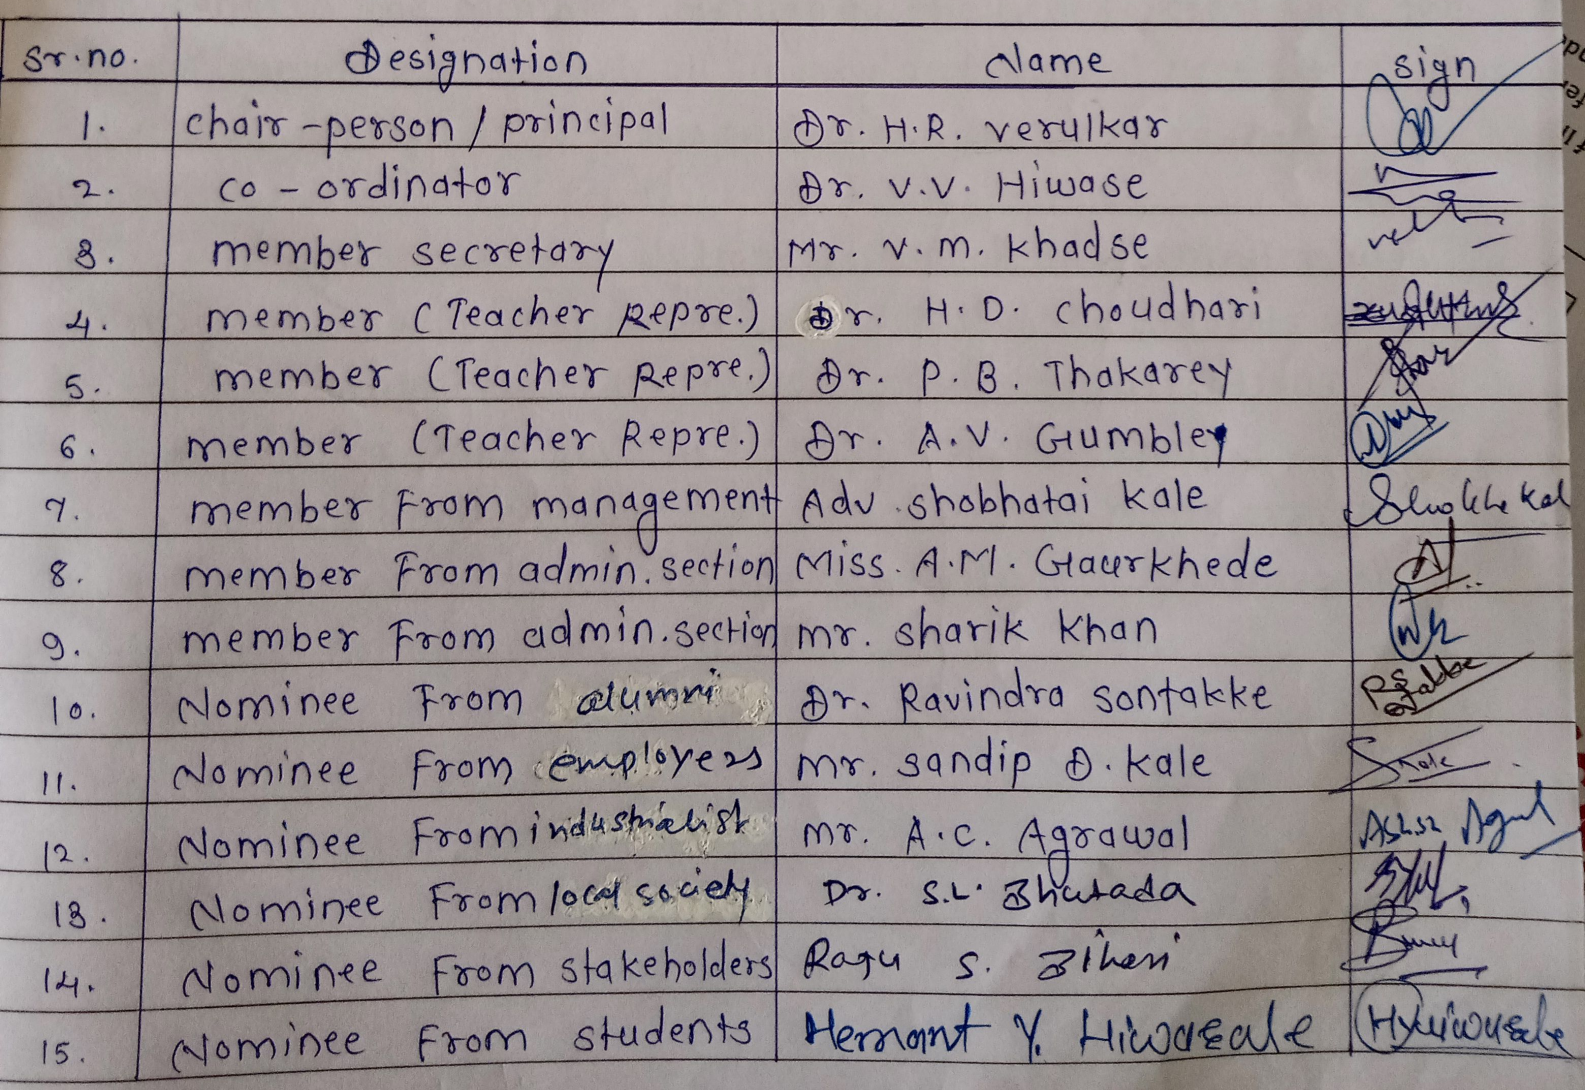 Sr.no. Designation Name sign
1. chair-person / principal Dr. H.R. verulkar
2. co-ordinator Dr. V.V. Hiwase
3. member secretary Mr. V.M. Khadse
4. member (Teacher Repre.) Dr. H.D. Choudhari
5. member (Teacher Repre.) Dr. P.B. Thakarey
6. member (Teacher Repre.) Dr. A.V. Gumbley
7. member From management Adv. shobhatai kale
8. member From admin. section Miss. A.M. Gaurkhede
9. member From admin. section mr. sharik khan
10. Nominee From alumni Dr. Ravindra sontakke
11. Nominee From employers mr. sandip D. kale
12. Nominee From industrialist mr. A.C. Agrawal
13. Nominee From local society Dr. S.L. Bhutada
14. Nominee From stakeholders Ragu S. Bihari
15. Nominee From students Hemant Y. Hiwasale